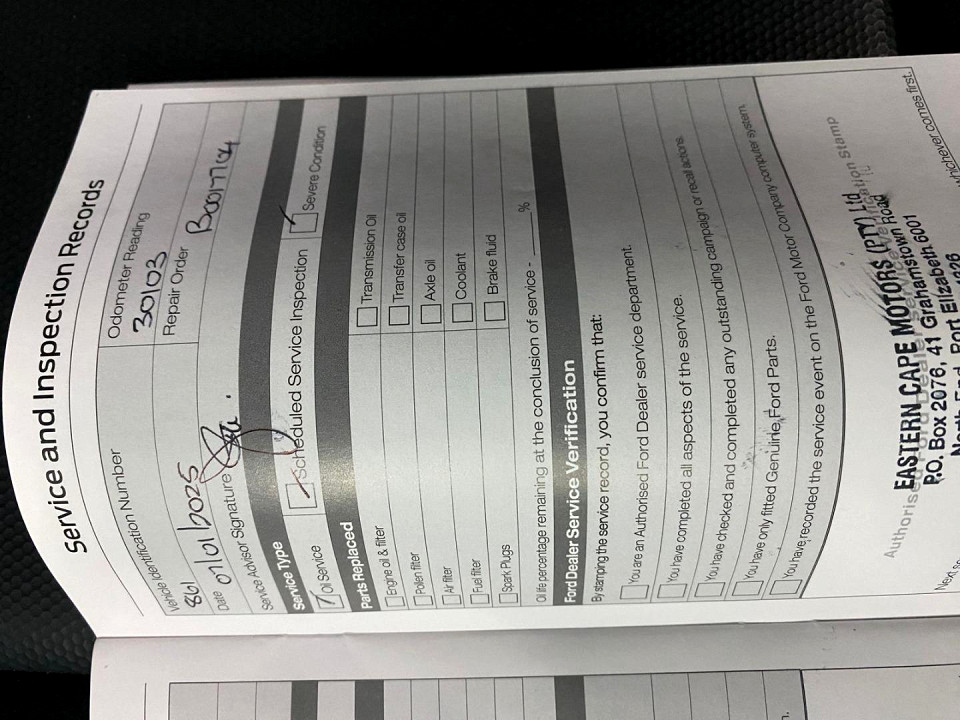 Service and Inspection Records
Vehicle Identification Number
Odometer Reading
861
30103
Date 07/01/2025
Repair Order B0017704
Service Advisor Signature
Service Type
Oil Service
Scheduled Service Inspection
Severe Condition
Parts Replaced
Engine oil & filter
Transmission Oil
Pollen filter
Transfer case oil
Air filter
Axle oil
Fuel filter
Coolant
Spark Plugs
Brake fluid
Oil life percentage remaining at the conclusion of service - ____%
Ford Dealer Service Verification
By stamping the service record, you confirm that:
You are an Authorised Ford Dealer service department.
You have completed all aspects of the service.
You have checked and completed any outstanding campaign or recall actions.
You have only fitted Genuine Ford Parts.
You have recorded the service event on the Ford Motor Company computer system.
EASTERN CAPE MOTORS (PTY) Ltd
Authorised Ford Dealer Service Verification Stamp
P.O. Box 2076, 41 Grahamstown Road
North End, Port Elizabeth 6001
Next
whichever comes first.